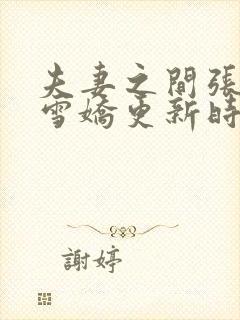 夫妻之間張
雪嬌更新時
謝婷